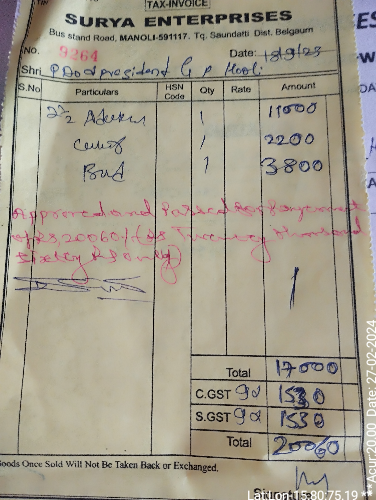 TAX-INVOICE
SURYA ENTERPRISES
Bus stand Road, MANOLI-591117. Tq. Saundatti Dist. Belgaum
NO. 9264 Date: 18/9/23
Shri president G P Hooli
S.No Particulars HSN Code Qty Rate Amount
1 11000
1 2200
Bud 1 3800
Approved and Passed for Payment
of Rs 20060/- (Rs Twenty thousand
Sixty Rs only)
Total 17000
C.GST 9% 1530
S.GST 9% 1530
Total 20060
Goods Once Sold Will Not Be Taken Back or Exchanged.
Signature
Lat,lon:15.80,75.19 ** Acu: 20.00 Date: 27-02-2024